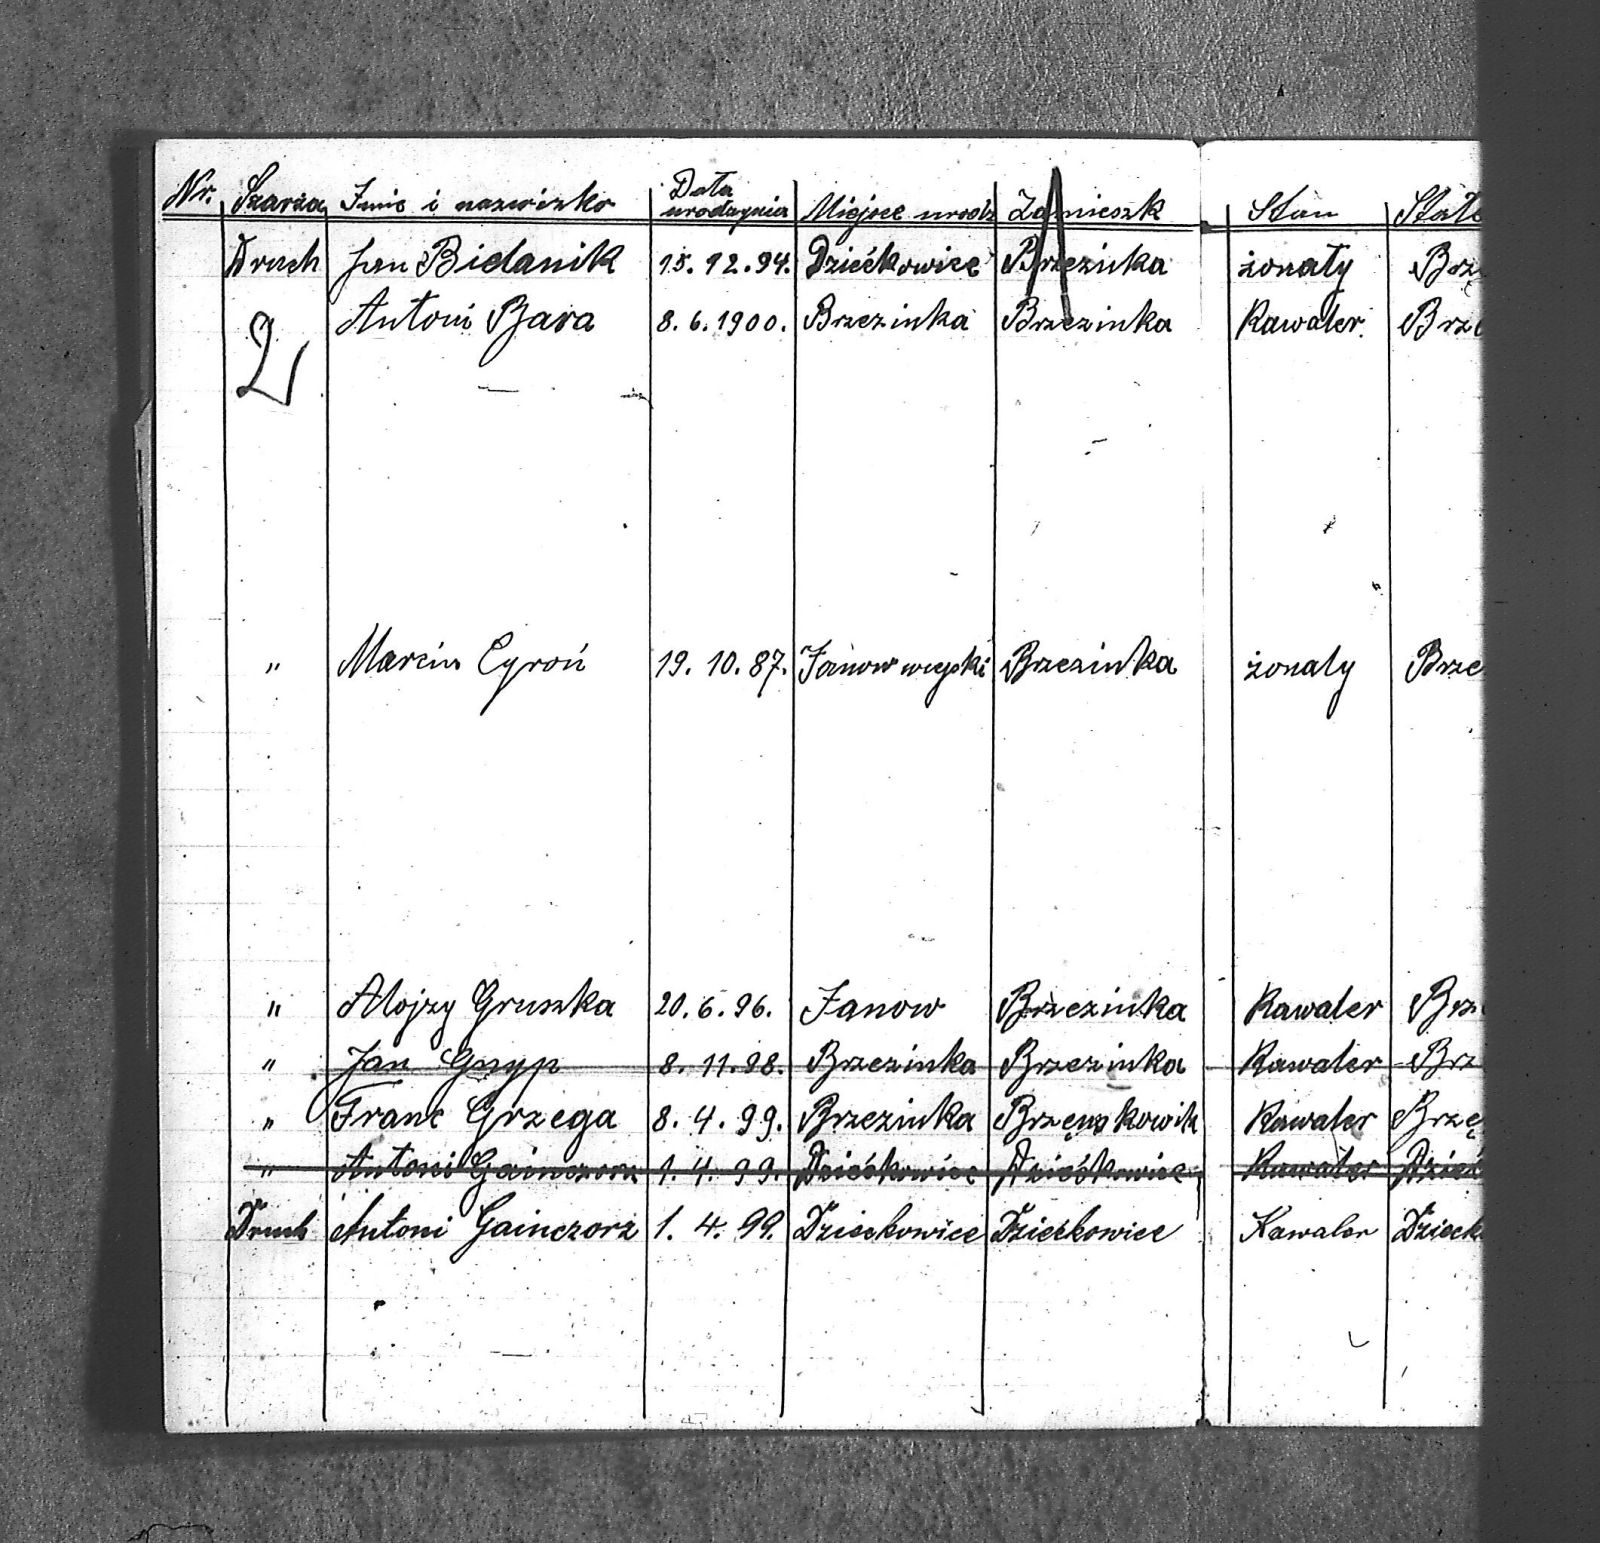 Nr. Szarża Imie i nazwizko Data urodzynia Miejsce urodz Zamieszk Stan
Druch Jan Bielanik 15.12.94. Dziećkowice Brzezinka żonaty Brzę
Antoni Bara 8.6.1900. Brzezinka Brzezinka Kawaler Brze
" Marcin Cyroń 19.10.87. Janow wiejski Brzezinka żonaty Brze
" Alojzy Gruszka 20.6.96. Janow Brzezinka Kawaler Brze
" Jan Gnyp 8.11.98. Brzezinka Brzezinka Kawaler Brz
" Franc Grzega 8.4.99. Brzezinka Brzęnskowik Kawaler Brzę
" Antoni Gainczorz 1.4.99. Dziećkowice Dziećkowice Kawaler Dzieć
Druch Antoni Gainczorz 1.4.99. Dzieckowice Dziećkowice Kawaler Dzieck